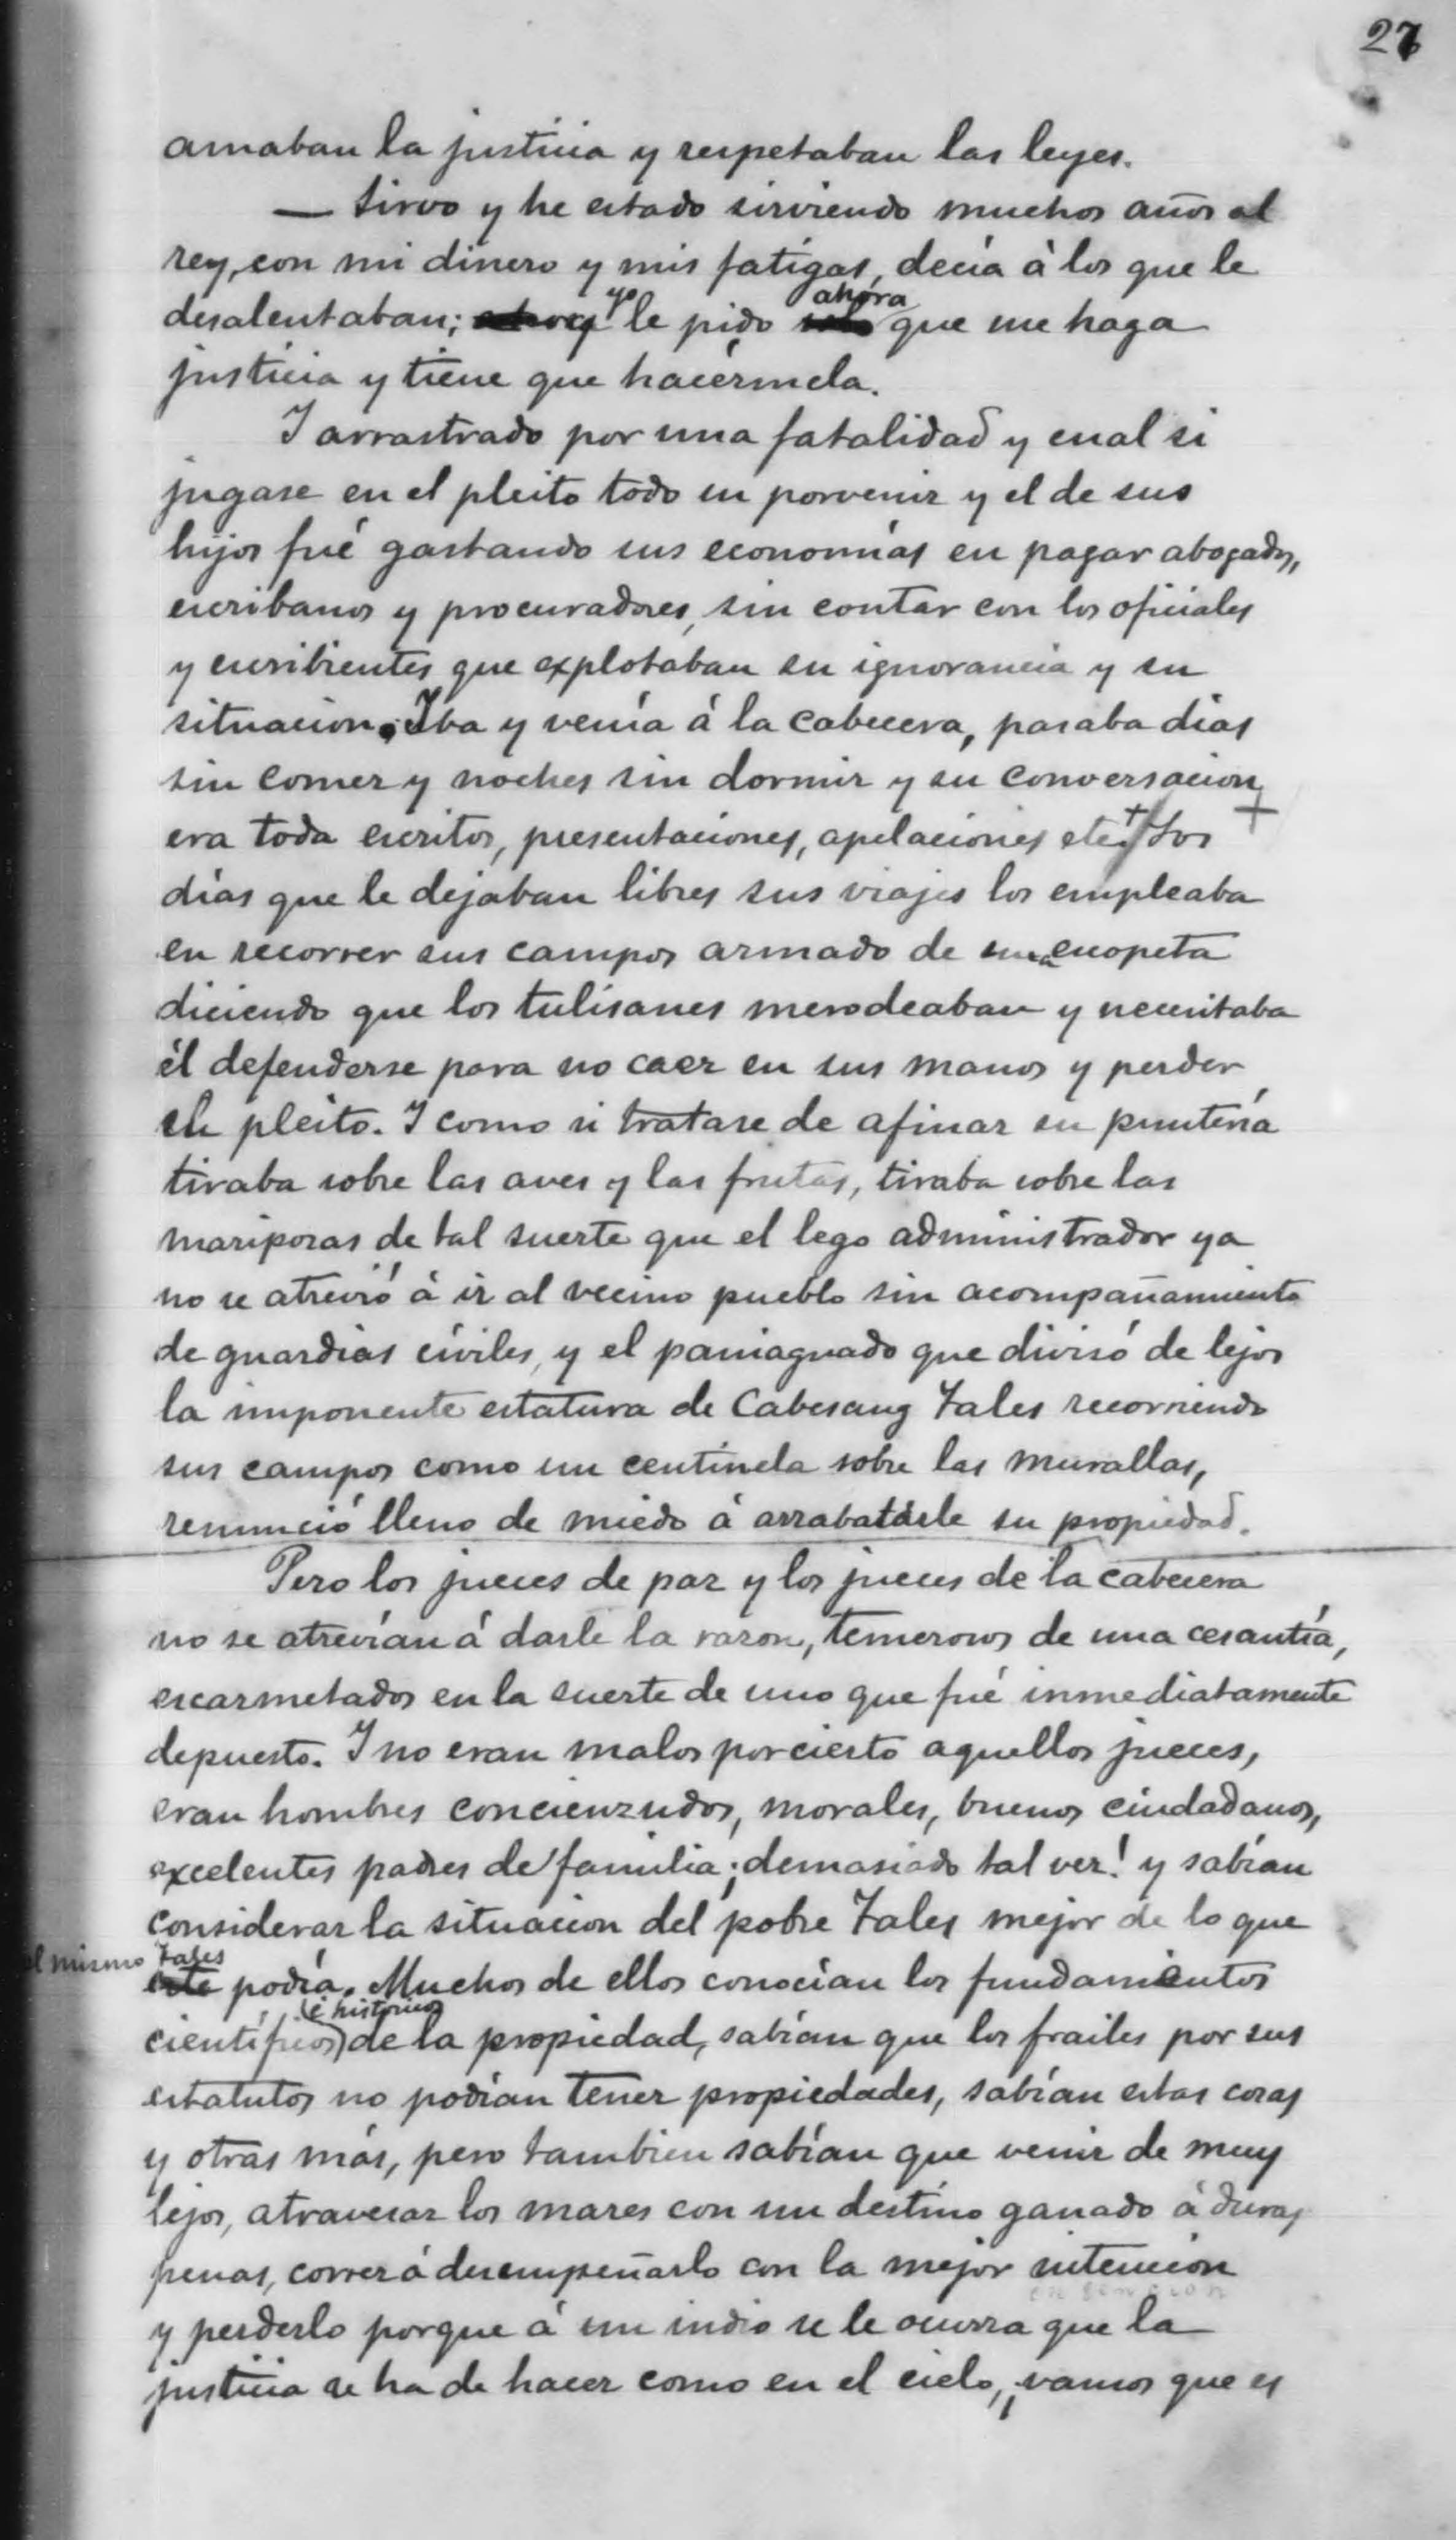 27
amaban la justicia y respetaban las leyes.
— Sirvo y he estado sirviendo muchos años al
rey, con mi dinero y mis fatigas, decía à los que le
desalentaban; yo le pido ahora que me haga
justicia y tiene que hacérmela.
Y arrastrado por una fatalidad y cual si
jugase en el pleito todo su porvenir y el de sus
hijos fué gastando sus economías en pagar abogados,
escribanos y procuradores, sin contar con los oficiales
y escribientes que explotaban su ignorancia y su
situacion. Iba y venía á la cabecera, pasaba días
sin comer y noches sin dormir y su conversacion
era toda escritos, presentaciones, apelaciones etc. + Los +
días que le dejaban libres sus viajes los empleaba
en recorrer sus campos armado de una escopeta
diciendo que los tulisanes merodeaban y necesitaba
él defenderse para no caer en sus manos y perder
el pleito. Y como si tratase de afinar su puntería
tiraba sobre las aves y las frutas, tiraba sobre las
mariposas de tal suerte que el lego administrador ya
no se atrevió à ir al vecino pueblo sin acompañamiento
de guardias civiles, y el paniaguado que divisó de lejos
la imponente estatura de Cabesang Tales recorriendo
sus campos como un centinela sobre las murallas,
renunció lleno de miedo á arrabatárle su propiedad.
Pero los jueces de paz y los jueces de la cabecera
no se atrevían á darle la razon, temerosos de una cesantía,
escarmetados en la suerte de uno que fué inmediatamente
depuesto. Y no eran malos por cierto aquellos jueces,
eran hombres concienzudos, morales, buenos ciudadanos,
excelentes padres de familia ¡demasiado tal vez! y sabían
considerar la situacion del pobre Tales mejor de lo que
el mismo Tales
este podía. Muchos de ellos conocían los fundamientos
científicos é historicos de la propiedad, sabían que los frailes por sus
estatutos no podían tener propiedades, sabían estas cosas
y otras más, pero tambien sabían que venir de muy
lejos, atravesar los mares con un destino ganado á duras
penas, correr á desempeñarlo con la mejor intencion
y perderlo porque á un indio se le ocurra que la
justicia se ha de hacer como en el cielo, ¡vamos que es